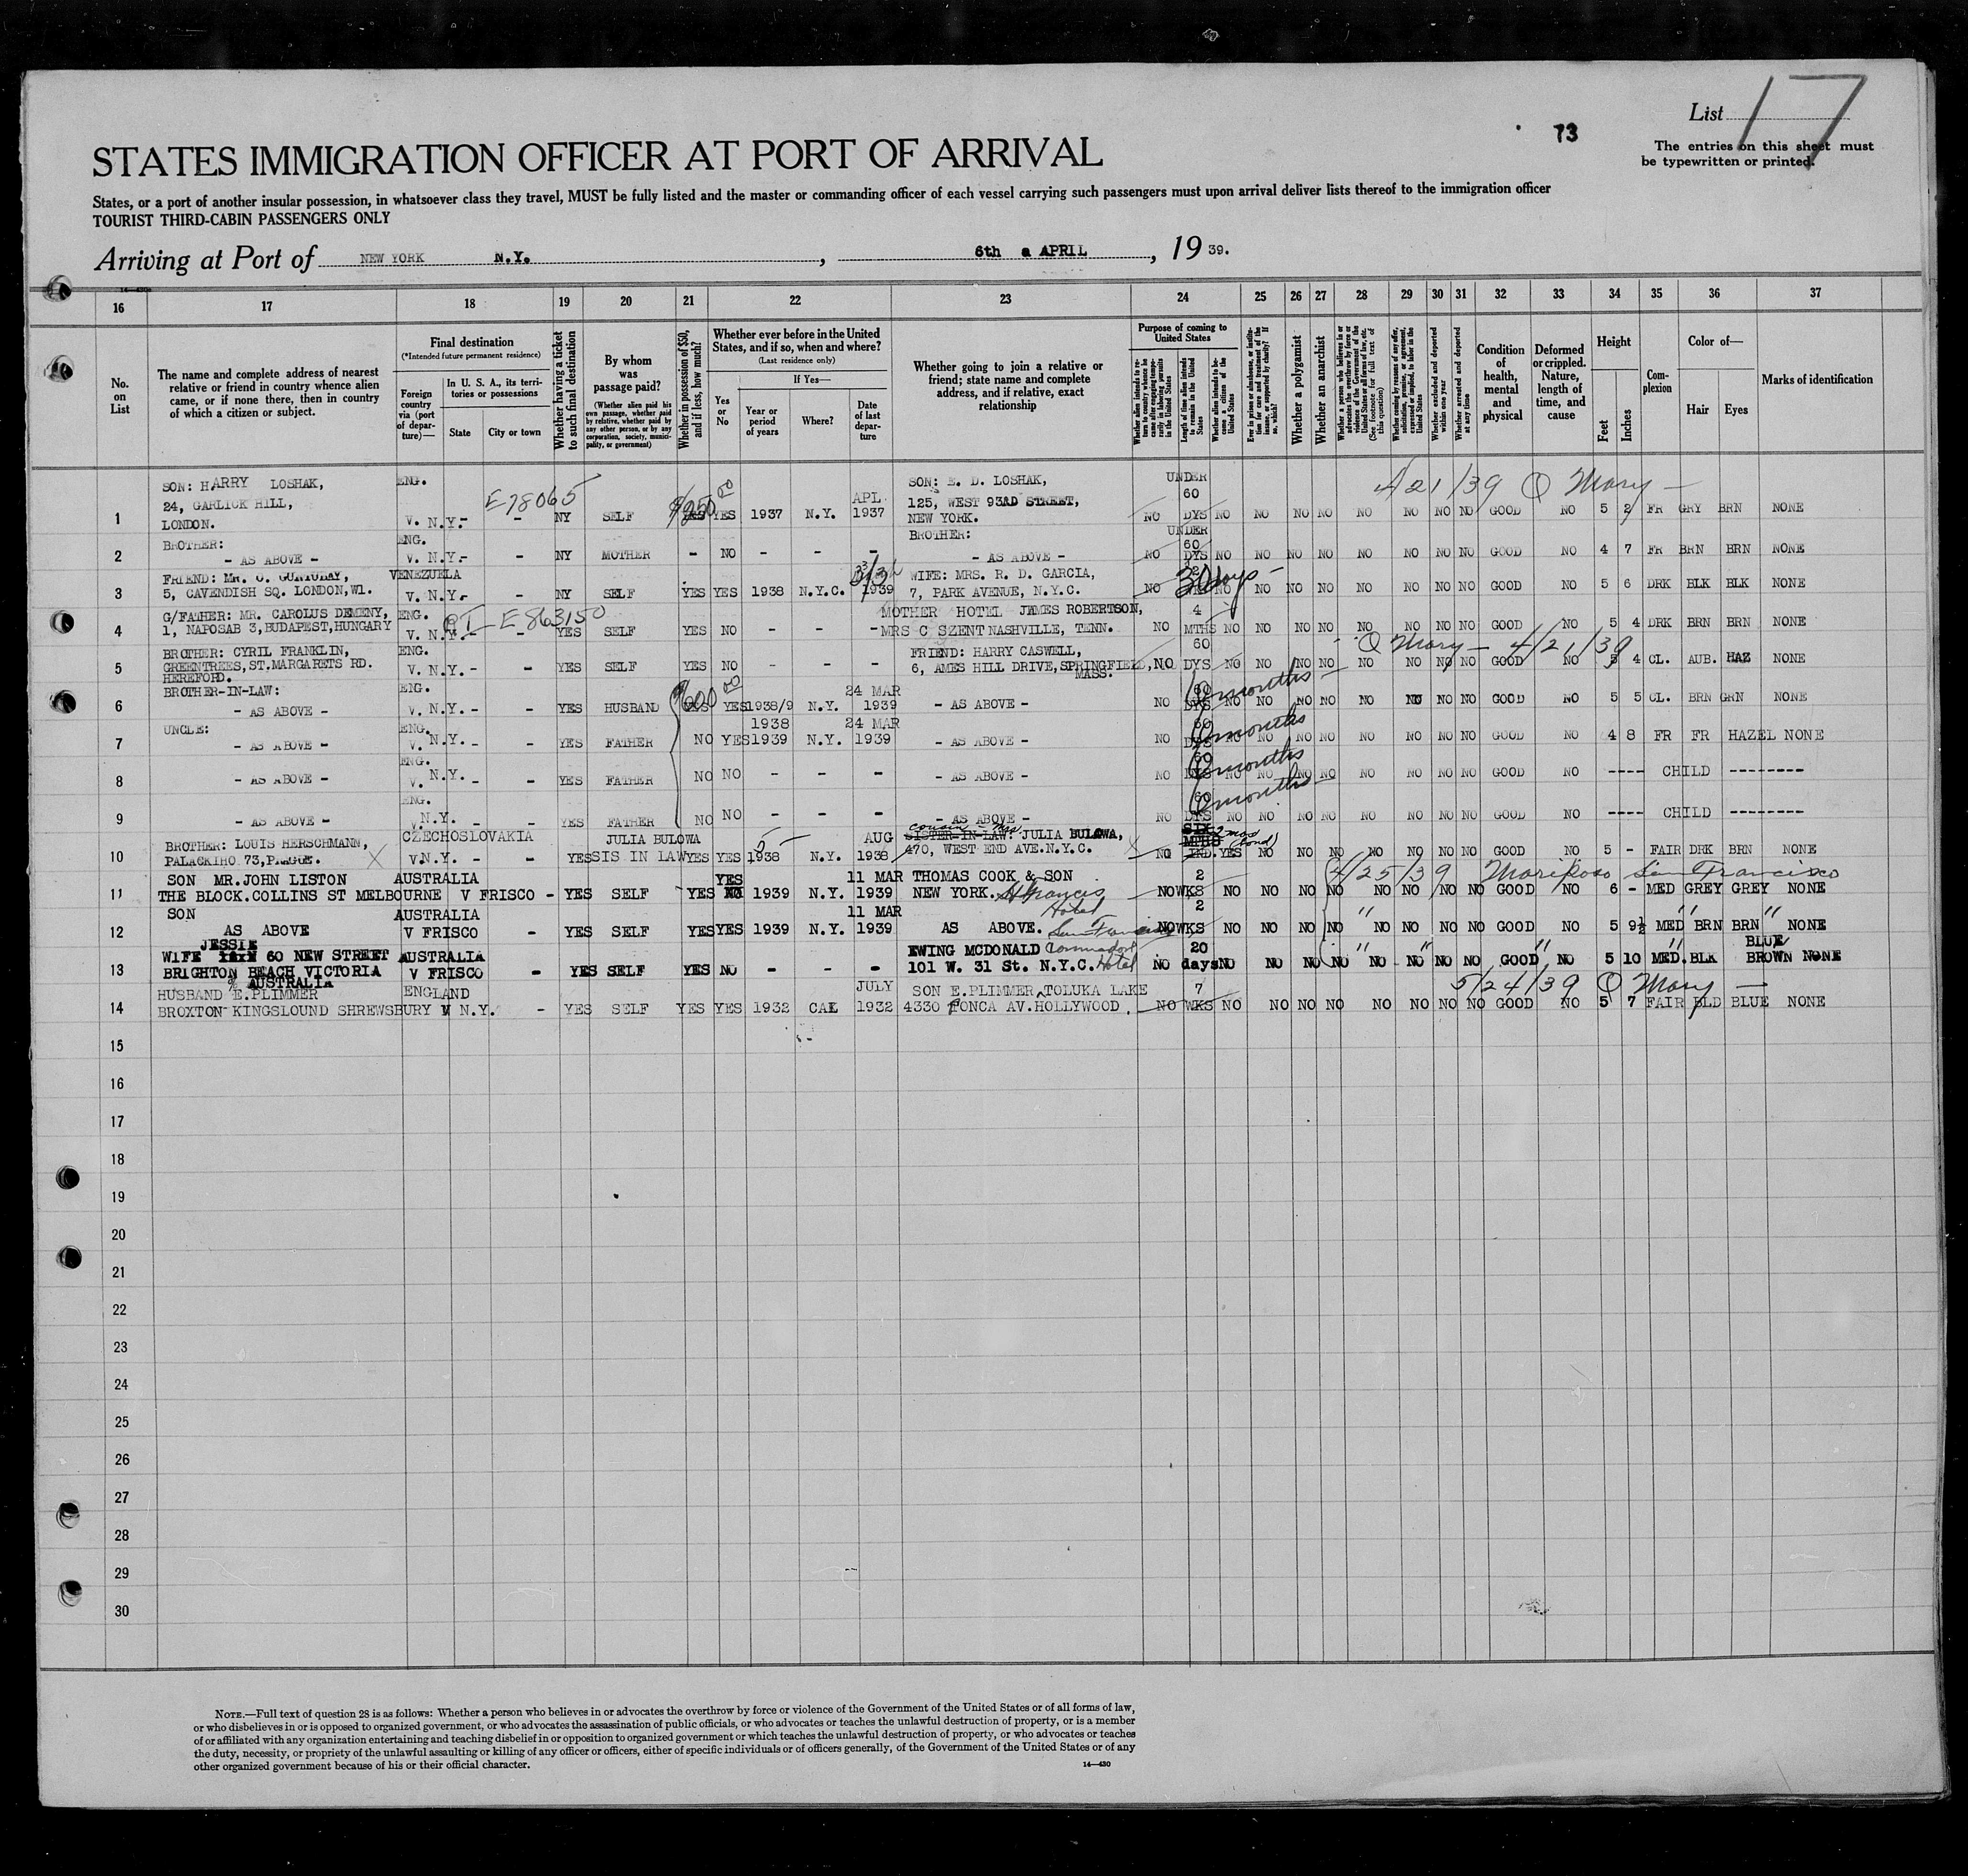 List 17
73
The entries on this sheet must
be typewritten or printed.
STATES IMMIGRATION OFFICER AT PORT OF ARRIVAL
States, or a port of another insular possession, in whatsoever class they travel, MUST be fully listed and the master or commanding officer of each vessel carrying such passengers must upon arrival deliver lists thereof to the immigration officer
TOURIST THIRD-CABIN PASSENGERS ONLY
Arriving at Port of NEW YORK N.Y., 6th a APRIL, 19 39.
16 17 18 19 20 21 22 23 24 25 26 27 28 29 30 31 32 33 34 35 36 37
No. on List
The name and complete address of nearest relative or friend in country whence alien came, or if none there, then in country of which a citizen or subject.
Final destination
(*Intended future permanent residence)
Foreign country via (port of departure)—
In U. S. A., its territories or possessions
State
City or town
Whether having a ticket to such final destination
By whom was passage paid?
(Whether alien paid his own passage, whether paid by relative, whether paid by any other person, or by any corporation, society, municipality, or government)
Whether in possession of $50, and if less, how much?
Whether ever before in the United States, and if so, when and where?
(Last residence only)
Yes or No
If Yes—
Year or period of years
Where?
Date of last departure
Whether going to join a relative or friend; state name and complete address, and if relative, exact relationship
Purpose of coming to United States
Whether alien intends to return to country whence he came after engaging temporarily in laboring pursuits in the United States
Length of time alien intends to remain in the United States
Whether alien intends to become a citizen of the United States
Ever in prison or almshouse, or institution for care and treatment of the insane, or supported by charity? If so, which?
Whether a polygamist
Whether an anarchist
Whether a person who believes in or advocates the overthrow by force or violence of the Government of the United States or all forms of law, etc. (See footnote for full text of this question)
Whether coming by reasons of any offer, solicitation, promise, or agreement, expressed or implied, to labor in the United States
Whether excluded and deported within one year
Whether arrested and deported at any time
Condition of health, mental and physical
Deformed or crippled. Nature, length of time, and cause
Height
Feet
Inches
Complexion
Color of—
Hair
Eyes
Marks of identification
SON: HARRY LOSHAK, ENG. SON: E. D. LOSHAK, UNDER 4/21/39 Q Mary —
24, GARLICK HILL, E78065 $250 00 APL 125, WEST 93RD STREET, 60
1 LONDON. V. N.Y. - - NY SELF YES YES 1937 N.Y. 1937 NEW YORK. NO DYS NO NO NO NO NO NO NO NO GOOD NO 5 2 FR GRY BRN NONE
BROTHER: ENG. BROTHER: UNDER 60
2 - AS ABOVE - V. N.Y. - - NY MOTHER - NO - - - - AS ABOVE - NO DYS NO NO NO NO NO NO NO NO GOOD NO 4 7 FR BRN BRN NONE
FRIEND: MR. VENEZUELA WIFE: MRS. R. D. GARCIA, 30 days -
3 5, CAVENDISH SQ. LONDON,W1. V. N.Y. - NY SELF YES YES 1938 N.Y.C. 1939 7, PARK AVENUE, N.Y.C. NO NO NO NO NO NO NO NO NO GOOD NO 5 6 DRK BLK BLK NONE
G/FATHER: MR. CAROLUS DEMENY, ENG. E863150 MOTHER HOTEL JAMES ROBERTSON, 4
4 1, NAPOSAB 3,BUDAPEST,HUNGARY V. N.Y. - - YES SELF YES NO - - - MRS C SZENT NASHVILLE, TENN. NO MTHS NO NO NO NO NO NO NO NO GOOD NO 5 4 DRK BRN BRN NONE
BROTHER: CYRIL FRANKLIN, ENG. FRIEND: HARRY CASWELL, 60 Q Mary — 4/21/39
5 GREENTREES,ST.MARGARETS RD. V. N.Y. - - YES SELF YES NO - - - 6, AMES HILL DRIVE,SPRINGFIELD, NO DYS NO NO NO NO NO NO NO NO GOOD NO 5 4 CL. AUB. HAZ NONE
HEREFORD. MASS.
BROTHER-IN-LAW: ENG. $600 00 24 MAR 60 6 months -
6 - AS ABOVE - V. N.Y. - - YES HUSBAND YES YES 1938/9 N.Y. 1939 - AS ABOVE - NO DYS NO NO NO NO NO NO NO NO GOOD NO 5 5 CL. BRN GRN NONE
UNCLE: ENG. 1938 24 MAR 60 6 months
7 - AS ABOVE - V. N.Y. - - YES FATHER NO YES 1939 N.Y. 1939 - AS ABOVE - NO DYS NO NO NO NO NO NO NO NO GOOD NO 4 8 FR FR HAZEL NONE
ENG. 60 6 months
8 - AS ABOVE - V. N.Y. - - YES FATHER NO NO - - - - AS ABOVE - NO DYS NO NO NO NO NO NO NO NO GOOD NO ---- CHILD --------
ENG. 60 6 months
9 - AS ABOVE - V. N.Y. - - YES FATHER NO NO - - - - AS ABOVE - NO DYS NO NO NO NO NO NO NO NO GOOD NO ---- CHILD --------
BROTHER: LOUIS HERSCHMANN, CZECHOSLOVAKIA JULIA BULOWA AUG cousin - Mrs SISTER-IN-LAW: JULIA BULOWA, SIX MTHS 2 mos
10 PALACKIHO 73,PRAGUE. V.N.Y. - - YES SIS IN LAW YES YES 1938 N.Y. 1938 470, WEST END AVE.N.Y.C. NO IND. YES NO NO NO NO NO NO NO GOOD NO 5 - FAIR DRK BRN NONE
SON MR.JOHN LISTON AUSTRALIA YES 11 MAR THOMAS COOK & SON 2 4/25/39 Mariposa San Francisco
11 THE BLOCK.COLLINS ST MELBOURNE V FRISCO - YES SELF YES NO 1939 N.Y. 1939 NEW YORK. St Francis Hotel NO WKS NO NO NO NO NO NO NO NO GOOD NO 6 - MED GREY GREY NONE
SON AUSTRALIA 11 MAR 2 " " "
12 AS ABOVE V FRISCO - YES SELF YES YES 1939 N.Y. 1939 AS ABOVE. San Francisco NO WKS NO NO NO NO NO NO NO NO GOOD NO 5 9½ MED BRN BRN NONE
JESSIE
WIFE 60 NEW STREET AUSTRALIA EWING MCDONALD Commodore 20 " " " " BLUE
13 BRIGHTON BEACH VICTORIA V FRISCO - YES SELF YES NO - - - 101 W. 31 St. N.Y.C. Hotel NO days NO NO NO NO NO NO NO NO GOOD NO 5 10 MED. BLK BROWN NONE
AUSTRALIA
HUSBAND E.PLIMMER ENGLAND JULY SON E.PLIMMER, TOLUKA LAKE 7 5/24/39 Q Mary —
14 BROXTON KINGSLOUND SHREWSBURY V N.Y. - YES SELF YES YES 1932 CAL 1932 4330 PONCA AV.HOLLYWOOD. NO WKS NO NO NO NO NO NO NO NO GOOD NO 5 7 FAIR BLD BLUE NONE
15
16
17
18
19
20
21
22
23
24
25
26
27
28
29
30
NOTE.—Full text of question 28 is as follows: Whether a person who believes in or advocates the overthrow by force or violence of the Government of the United States or of all forms of law,
or who disbelieves in or is opposed to organized government, or who advocates the assassination of public officials, or who advocates or teaches the unlawful destruction of property, or is a member
of or affiliated with any organization entertaining and teaching disbelief in or opposition to organized government or which teaches the unlawful destruction of property, or who advocates or teaches
the duty, necessity, or propriety of the unlawful assaulting or killing of any officer or officers, either of specific individuals or of officers generally, of the Government of the United States or of any
other organized government because of his or their official character.
14—430